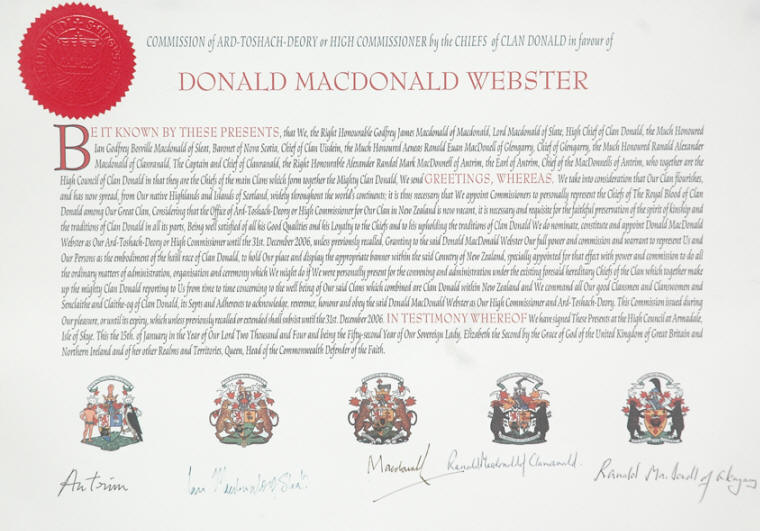 COMMISSION of ARD-TOSHACH-DEORY or HIGH COMMISSIONER by the CHIEFS of CLAN DONALD in favour of
DONALD MACDONALD WEBSTER
BE IT KNOWN BY THESE PRESENTS, that We, the Right Honourable Godfrey James Macdonald of Macdonald, Lord Macdonald of Slate, High Chief of Clan Donald, the Much Honoured
Ian Godfrey Bosville Macdonald of Sleat, Baronet of Nova Scotia, Chief of Clan Uisdein, the Much Honoured Aeneas Ranald Euan MacDonell of Glengarry, Chief of Glengarry, the Much Honoured Ranald Alexander
Macdonald of Clanranald, The Captain and Chief of Clanranald, the Right Honourable Alexander Randal Mark MacDonnell of Antrim, the Earl of Antrim, Chief of the MacDonnells of Antrim, who together are the
High Council of Clan Donald in that they are the Chiefs of the main Clans which form together the Mighty Clan Donald, We send GREETINGS, WHEREAS, We take into consideration that Our Clan flourishes,
and has now spread, from Our native Highlands and Islands of Scotland, widely throughout the world's continents; it is thus necessary that We appoint Commissioners to personally represent the Chiefs of The Royal Blood of Clan
Donald among Our Great Clan, Considering that the Office of Ard-Toshach-Deory or High Commissioner for Our Clan in New Zealand is now vacant, it is necessary and requisite for the faithful preservation of the spirit of kinship and
the traditions of Clan Donald in all its parts, Being well satisfied of all his Good Qualities and his Loyalty to the Chiefs and to his upholding the traditions of Clan Donald We do nominate, constitute and appoint Donald MacDonald
Webster as Our Ard-Toshach-Deory or High Commissioner until the 31st. December 2006, unless previously recalled, Granting to the said Donald MacDonald Webster Our full power and commission and warrant to represent Us and
Our Persons as the embodiment of the haill race of Clan Donald, to hold Our place and display the appropriate banner within the said Country of New Zealand, specially appointed for that effect with power and commission to do all
the ordinary matters of administration, organisation and ceremony which We might do if We were personally present for the convening and administration under the existing foresaid hereditary Chiefs of the Clan which together make
up the mighty Clan Donald reporting to Us from time to time concerning to the well being of Our said Clans which combined are Clan Donald within New Zealand and We command all Our good Clansmen and Clanswomen and
Senclaithe and Claithe-og of Clan Donald, its Septs and Adherents to acknowledge, reverence, honour and obey the said Donald MacDonald Webster as Our High Commissioner and Ard-Toshach-Deory. This Commission issued during
Our pleasure, or until its expiry, which unless previously recalled or extended shall subsist until the 31st. December 2006. IN TESTIMONY WHEREOF We have signed These Presents at the High Council at Armadale,
Isle of Skye. This the 15th. of January in the Year of Our Lord Two Thousand and Four and being the Fifty-second Year of Our Sovereign Lady, Elizabeth the Second by the Grace of God of the United Kingdom of Great Britain and
Northern Ireland and of her other Realms and Territories, Queen, Head of the Commonwealth Defender of the Faith.
Antrim
Ian Macdonald of Sleat
Macdonald
Ranald Macdonald of Clanranald.
Ranald MacDonell of Glengarry